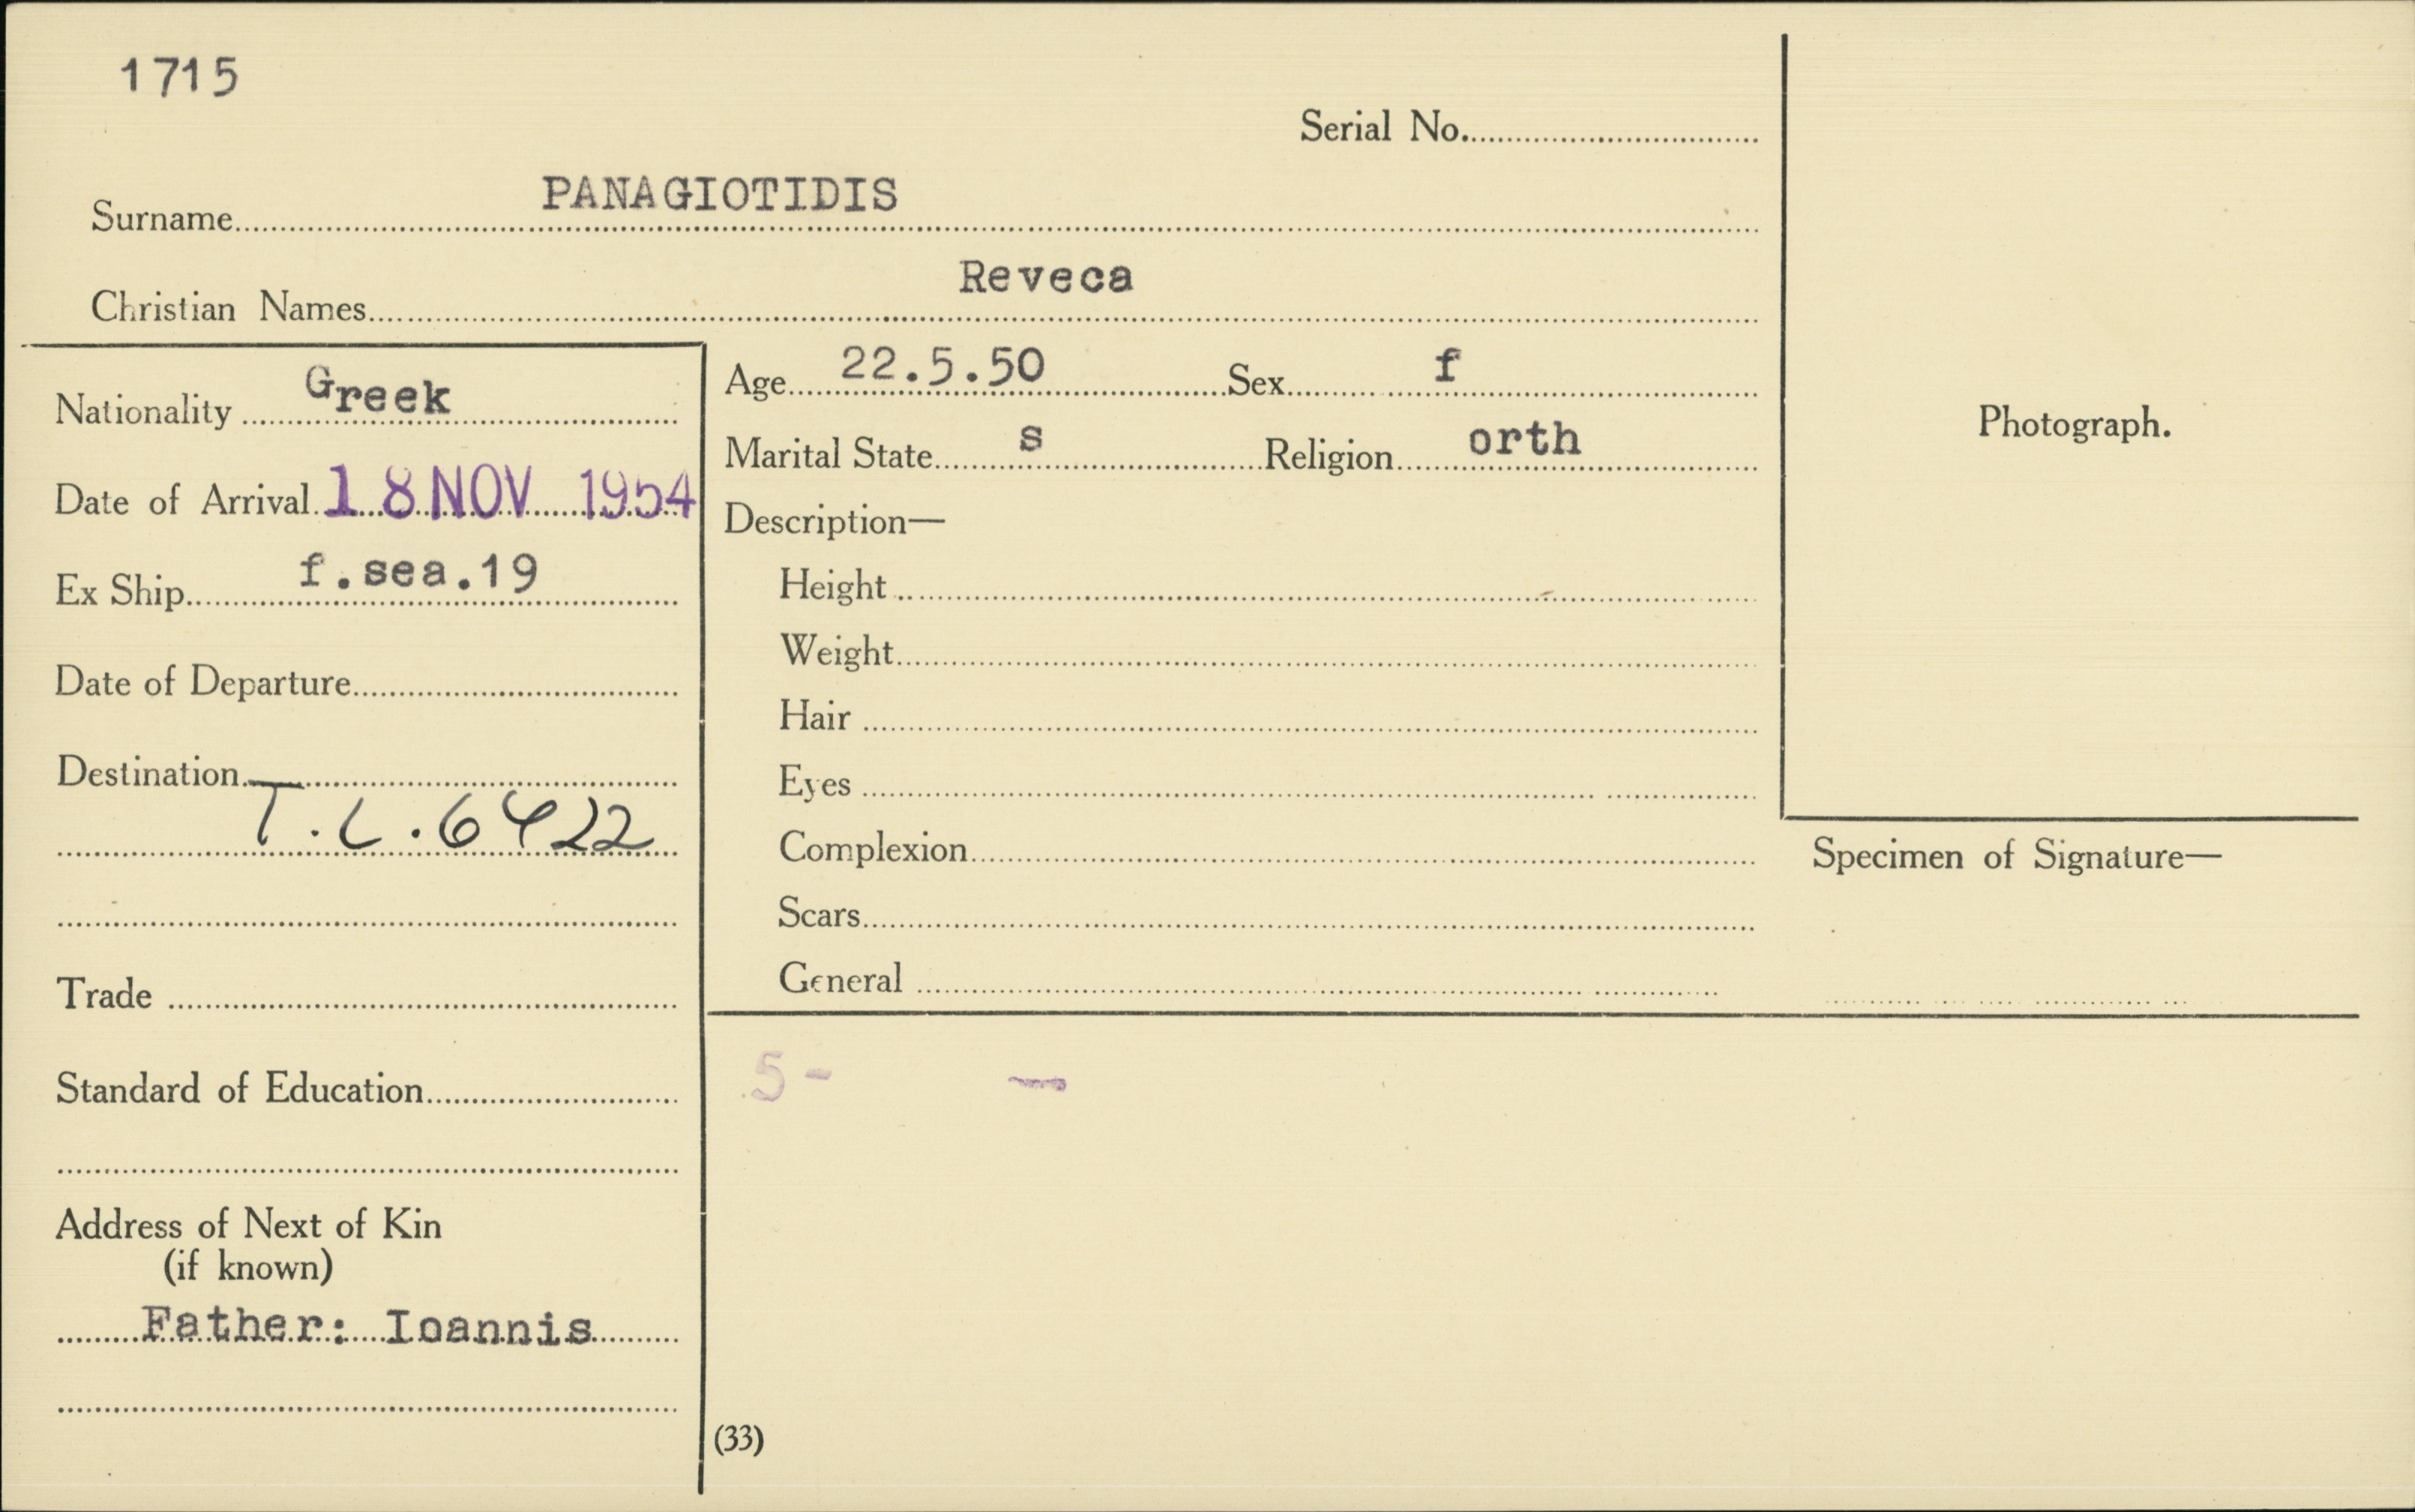 1715
Serial No.
Surname PANAGIOTIDIS
Christian Names Reveca
Nationality Greek
Date of Arrival 18 NOV 1954
Ex Ship f.sea.19
Date of Departure
Destination
T.L.6422
Trade
Standard of Education
Address of Next of Kin
(if known)
Father: Ioannis
Age 22.5.50 Sex f
Marital State s Religion orth
Description—
Height
Weight
Hair
Eyes
Complexion
Scars
General
5 -
(33)
Photograph.
Specimen of Signature—